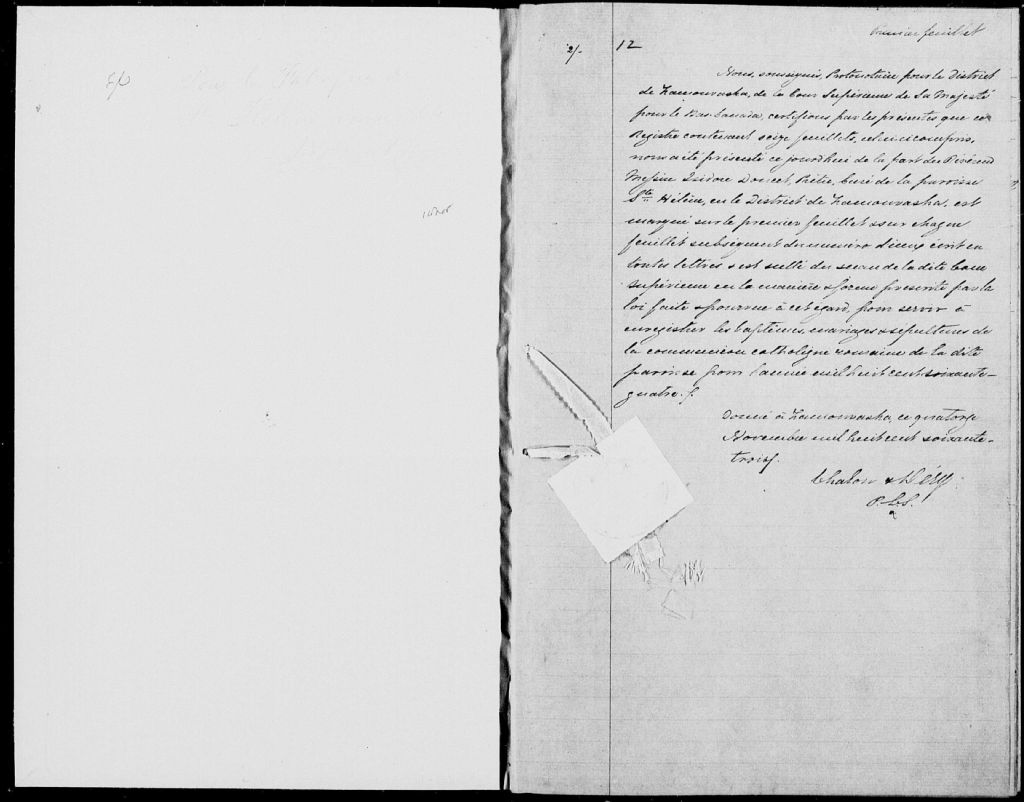 Premier feuillet
2/-
12
Nous, soussignés, Protonotaire pour le District
de Kamouraska, de la Cour Supérieure de Sa Majesté
pour le Bas-Canada, certifions par les présentes que ce
Registre contenant seize feuillets, celui-ci compris,
nous a été présenté ce jourd'hui de la part du Révérend
Messire Isidore Doucet, Prêtre, Curé de la paroisse
Ste Hélène, en le District de Kamouraska, est
marqué sur le premier feuillet & sur chaque
feuillet subséquent du numéro en
toutes lettres & est scellé du sceau de la dite Cour
Supérieure en la manière & forme prescrite par la
loi faite & pourvue à cet égard, pour servir à
enregistrer les baptêmes, mariages & sépultures de
la communion catholique romaine de la dite
paroisse pour l'année mil huit cent soixante-
quatre.
Donné à Kamouraska, ce quatorze
Novembre mil huit cent soixante-
trois.
Chalou &
P.C.S.